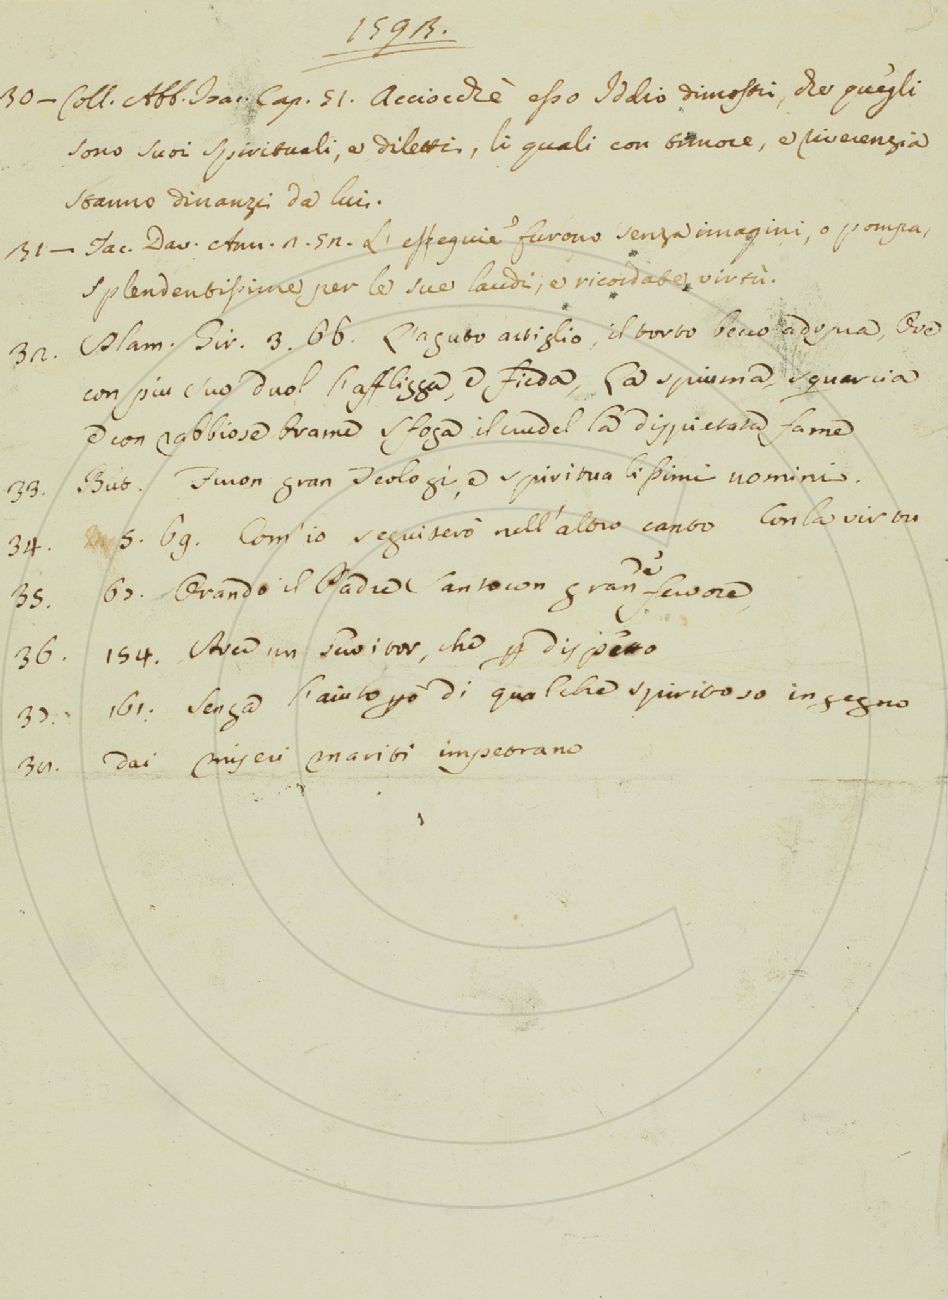 30 – Coll. Abb. Isac. Cap. 51. Acciocchè esso Iddio dimostri, che quegli
sono suoi spirituali, e diletti, li quali con timore, e riverenzia
stanno dinanzi da lui.
31 – Tac. Dav. Ann. 2. 52. L'essequie furono senza imagini, o pompa,
splendentissime per le sue laudi, e ricordate virtù.
32. Alam. Gir. 3. 66. L'aguto artiglio, il torto becco adopra, Ove
con piu suo duol l'affligga, e fieda, La spiuma, squarcia
e con rabbiose brame Sfoga il crudel la dispietata fame
33. But. Furon gran Teologi, e spiritualissimi uomini.
34. 5. 69. Com'io seguiterò nell'altro canto Con la virtu
35. 67. Orando il Padre Santo con grande fervore
36. 154. Avea un servitor, che per dispetto
37. 161. Senza l'aiuto però di qualche spiritoso ingegno
38. Dai miseri mariti impetrano